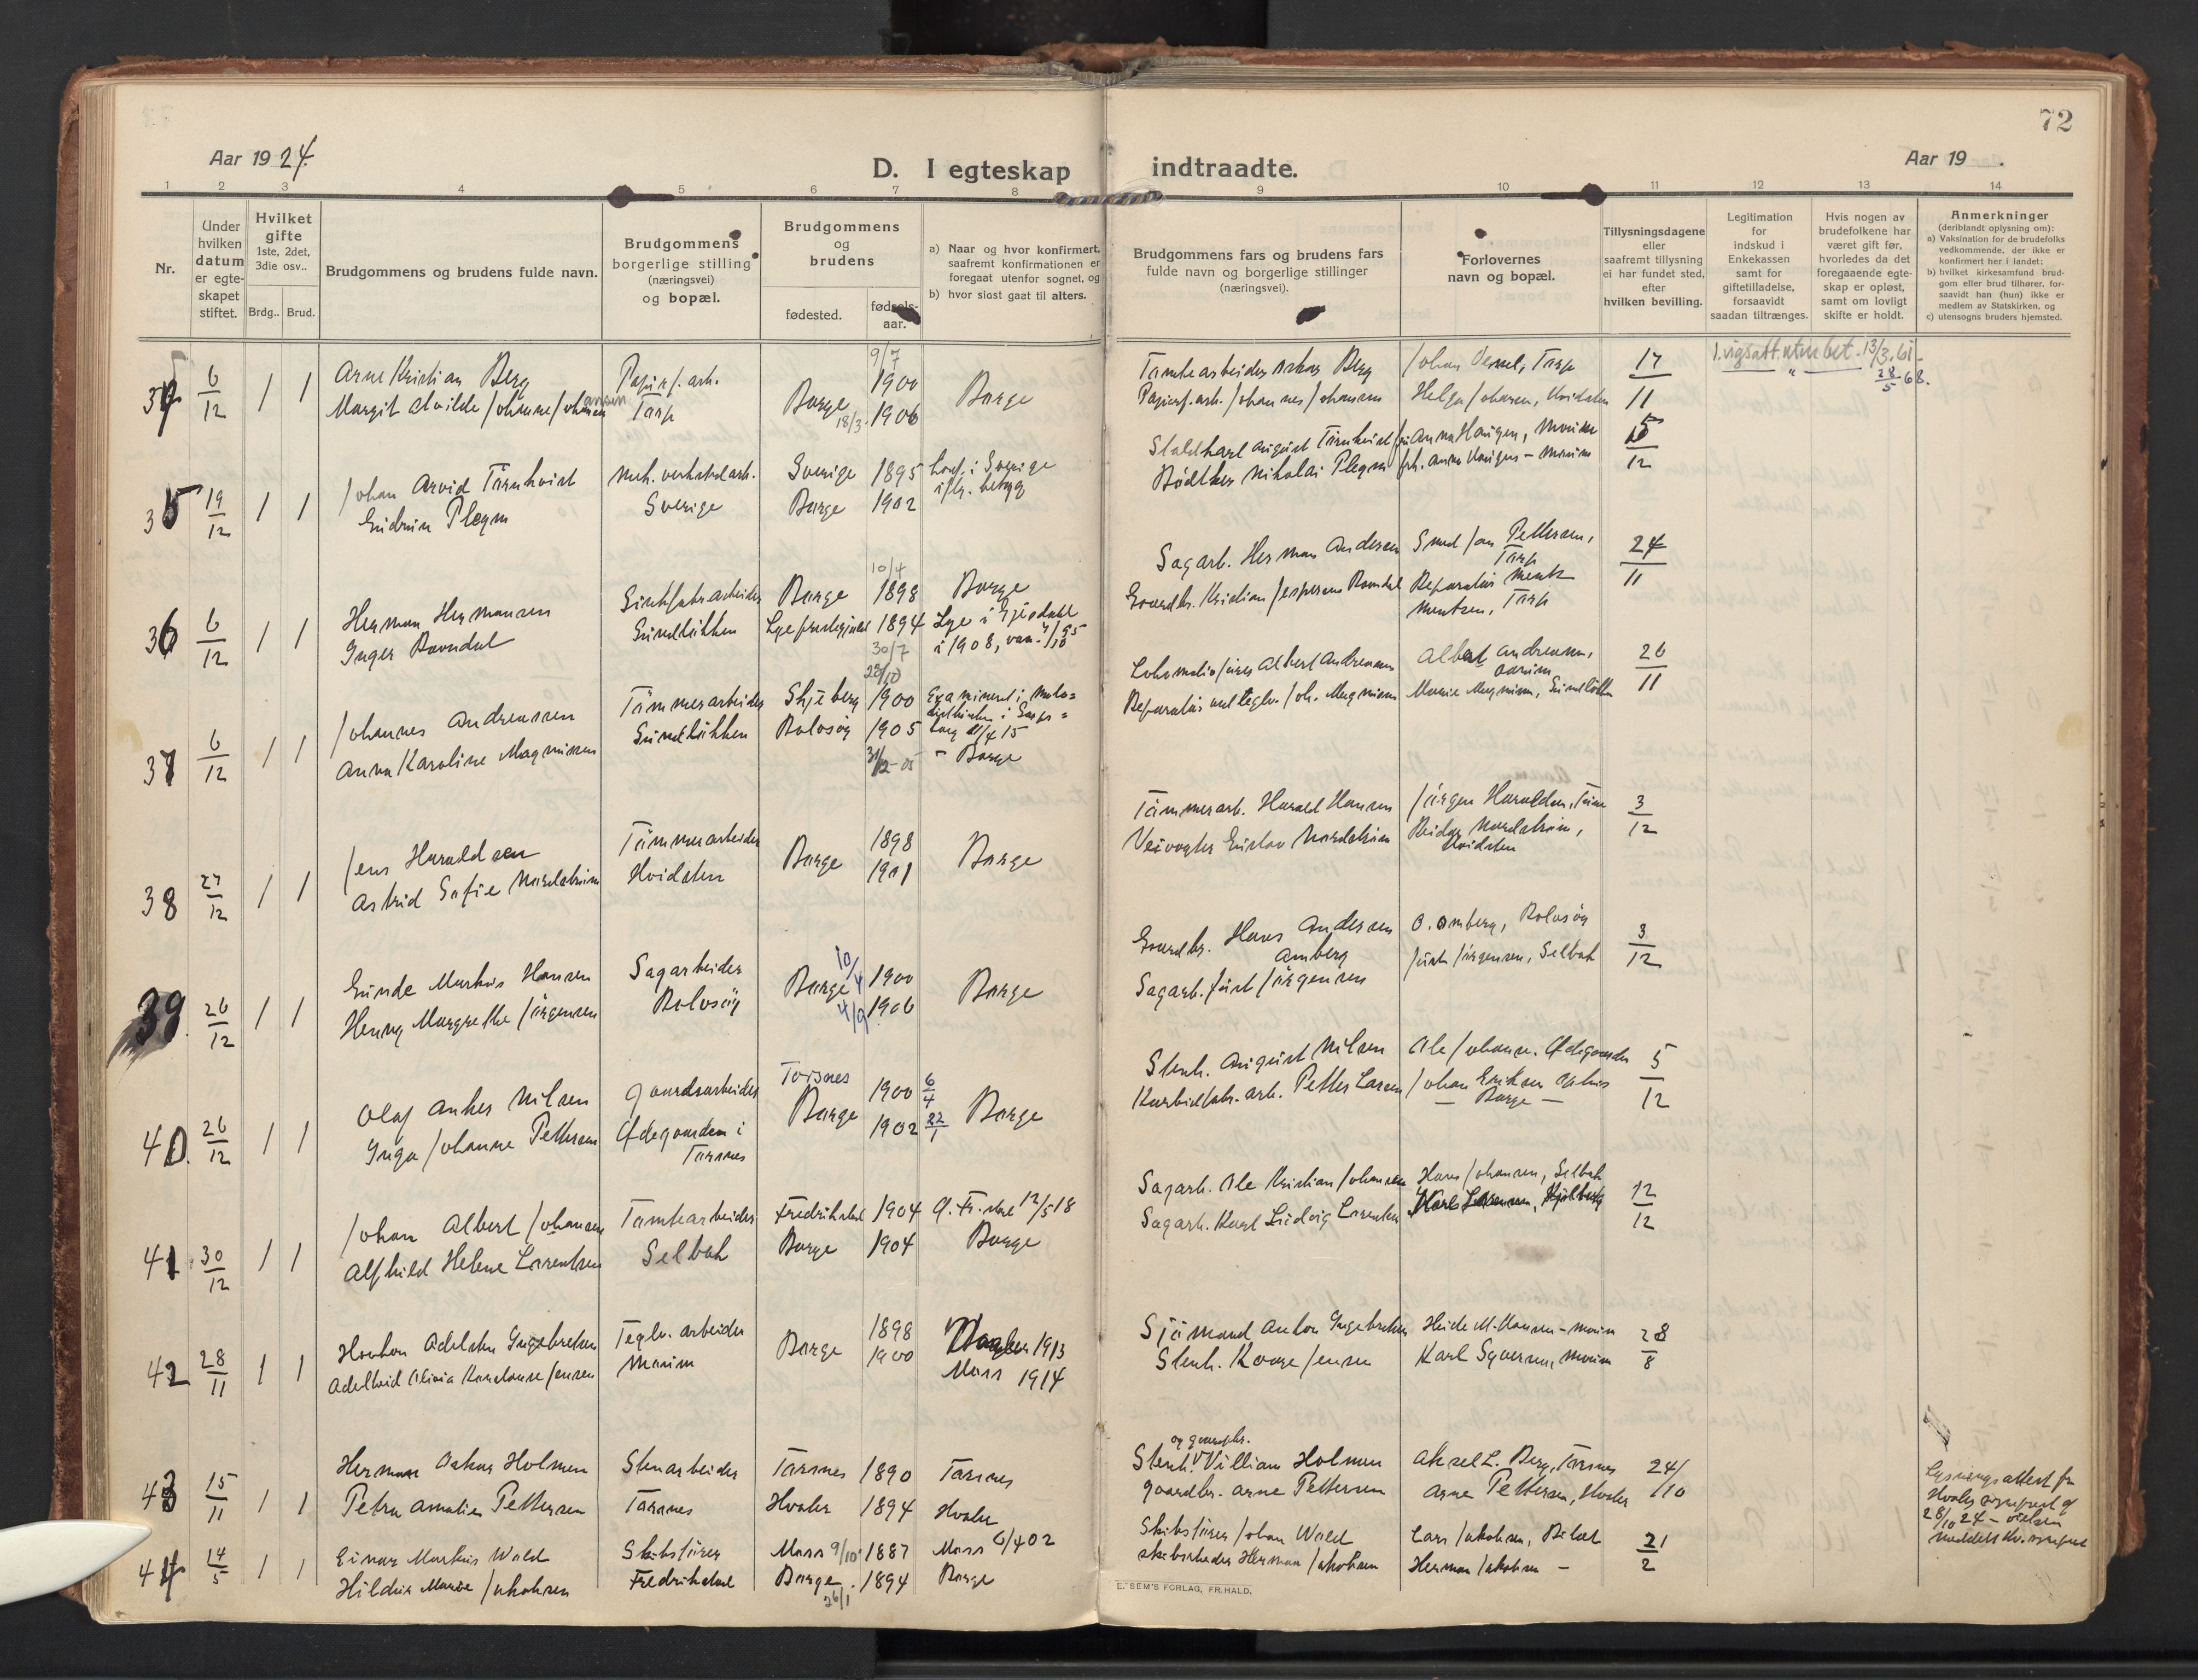 72
Aar 19 24.
D. I egteskap indtraadte.
Aar 19 .
1 2 3 4 5 6 7 8 9 10 11 12 13 14
Nr.
Under hvilken datum er egteskapet stiftet.
Hvilket gifte 1ste, 2det, 3die osv..
Brdg.. Brud.
Brudgommens og brudens fulde navn.
Brudgommens borgerlige stilling (næringsvei) og bopæl.
Brudgommens og brudens
fødested.
fødsels-aar.
a) Naar og hvor konfirmert, saafremt konfirmationen er foregaat utenfor sognet, og
b) hvor sidst gaat til alters.
Brudgommens fars og brudens fars fulde navn og borgerlige stillinger (næringsvei).
Forlovernes navn og bopæl.
Tillysningsdagene eller saafremt tillysning ei har fundet sted, efter hvilken bevilling.
Legitimation for indskud i Enkekassen samt for giftetilladelse, forsaavidt saadan tiltrænges.
Hvis nogen av brudefolkene har været gift før, hvorledes da det foregaaende egteskap er opløst, samt om lovligt skifte er holdt.
Anmerkninger (deriblandt oplysning om):
a) Vaksination for de brudefolks vedkommende, der ikke er konfirmert her i landet;
b) hvilket kirkesamfund brudgom eller brud tilhører, forsaavidt han (hun) ikke er medlem av Statskirken, og
c) utensogns bruders hjemsted.
34 6/12 1 1 Arne Kristian Berg Papirf. arb. 9/7 1900 Borge Tomtearbeider Oskar Berg Johan Vessel, Torp 17
Margit Alvilde Johanne Johansen Torp Borge 18/3 1906 Papirf. arb. Johannes Johansen Helga Johansen, Hvidsten 11
13/3.61 28/5 68.
35 19/12 1 1 Johan Arvid Törnkvist Mek. verkstedarb. Sverige 1895 konf. i Sverige Karl August Törnkvist Anna Haugen, Moum 15
Gudrun Plogm Sverige Borge 1902 iflg. bevis Bødtker Nikolai Plogm 12
36 6/12 1 1 Herman Hermansen Borge 10/4 1898 Borge Sagarb. Herman Andersen Smed Jan Pettersen, Torp 24
Inger Ravndal Sundløkken 1894 30/7 Lye i Gjesdal i 1908 Gaardbr. Kristian Jespersen Ravndal Reparatør Torp 11
37 6/12 1 1 Johannes Andreassen Tømmerarbeider Skjeberg 28/10 1900 Lokomotivfører Albert Andreassen Albert Andreassen, 26
Anna Karoline Magnussen Sundløkken Rolvsøy 1905 31/12-05 - Borge Reparatør ved teglv. Joh. Magnussen Marie Magnussen, Sundløkken 11
38 27/12 1 1 Jens Haraldsen Tømmerarbeider Borge 1898 Borge Tømmerarb. Harald Hansen Jørgen Haraldsen, 3
Astrid Sofie Nordstrøm Hvidsten 1901 Veivogter Gustav Nordstrøm Reidar Nordstrøm, Hvidsten 12
39. 26/12 1 1 Gunde Markus Hansen Sagarbeider Borge 10/4 1900 Borge Gaardbr. Hans Andersen Omberg O. Omberg, Rolvsøy 3
Henny Margrethe Jørgensen Rolvsøy 4/9 1906 Sagarb. Just Jørgensen Just Jørgensen, Selbak 12
40. 26/12 1 1 Olaf Anker Nilsen Gaardsarbeider Torsnes 1900 6/4 Borge Stenh. August Nilsen Ole Johans. Ødegaarden 5
Inga Johanne Pettersen Ødegaarden i Torsnes Borge 1902 22/1 Karbidfabr. arb. Petter Larsen Johan Eriksen Borge 12
41 30/12 1 1 Johan Albert Johansen Tomtearbeider Fredrikstad 1904 Ø. Fr.stad 12/5 18 Sagarb. Ole Kristian Johansen Hans Johansen, Selbak 12
Alfhild Helene Lorentsen Selbak Borge 1904 Borge Sagarb. Karl Ludvig Lorentsen Karl Lorentsen, Kjølberg 12
42 28/11 1 1 Haakon Adelsten Ingebretsen Teglv. arbeider Borge 1898 Hvaler 1913 Sjømand Anton Ingebretsen Heide M. Hansen - Moum 28
Adelheid Olivia Konstanse Jensen Moum 1900 Moss 1914 Stenh. Kaare Jensen Karl Syversen, Moum 8
43 15/11 1 1 Herman Oskar Holmen Stenarbeider Torsnes 1890 Torsnes Stenh. og gaardbr. Villiam Holmen Aksel L. Berg, Torsnes 24/10
Petra Amalie Pettersen Torsnes Hvaler 1894 Hvaler Gaardbr. Arne Pettersen Arne Pettersen, Hvaler
Lysningsattest fra Hvaler sogneprest af 28/10 24 - vielsen meddelt Hv. sogneprest
44 14/5 1 1 Einar Markus Wold Skibsfører Moss 9/10 1887 Moss 6/4 02 Skibsfører Johan Wold Lars Jakobsen, 21
Hildur Marie Jakobsen Fredrikstad Borge 26/1 1894 Borge Skibsreder Herman Jakobsen Herman Jakobsen - 2
E. SEM'S FORLAG, FR.HALD.